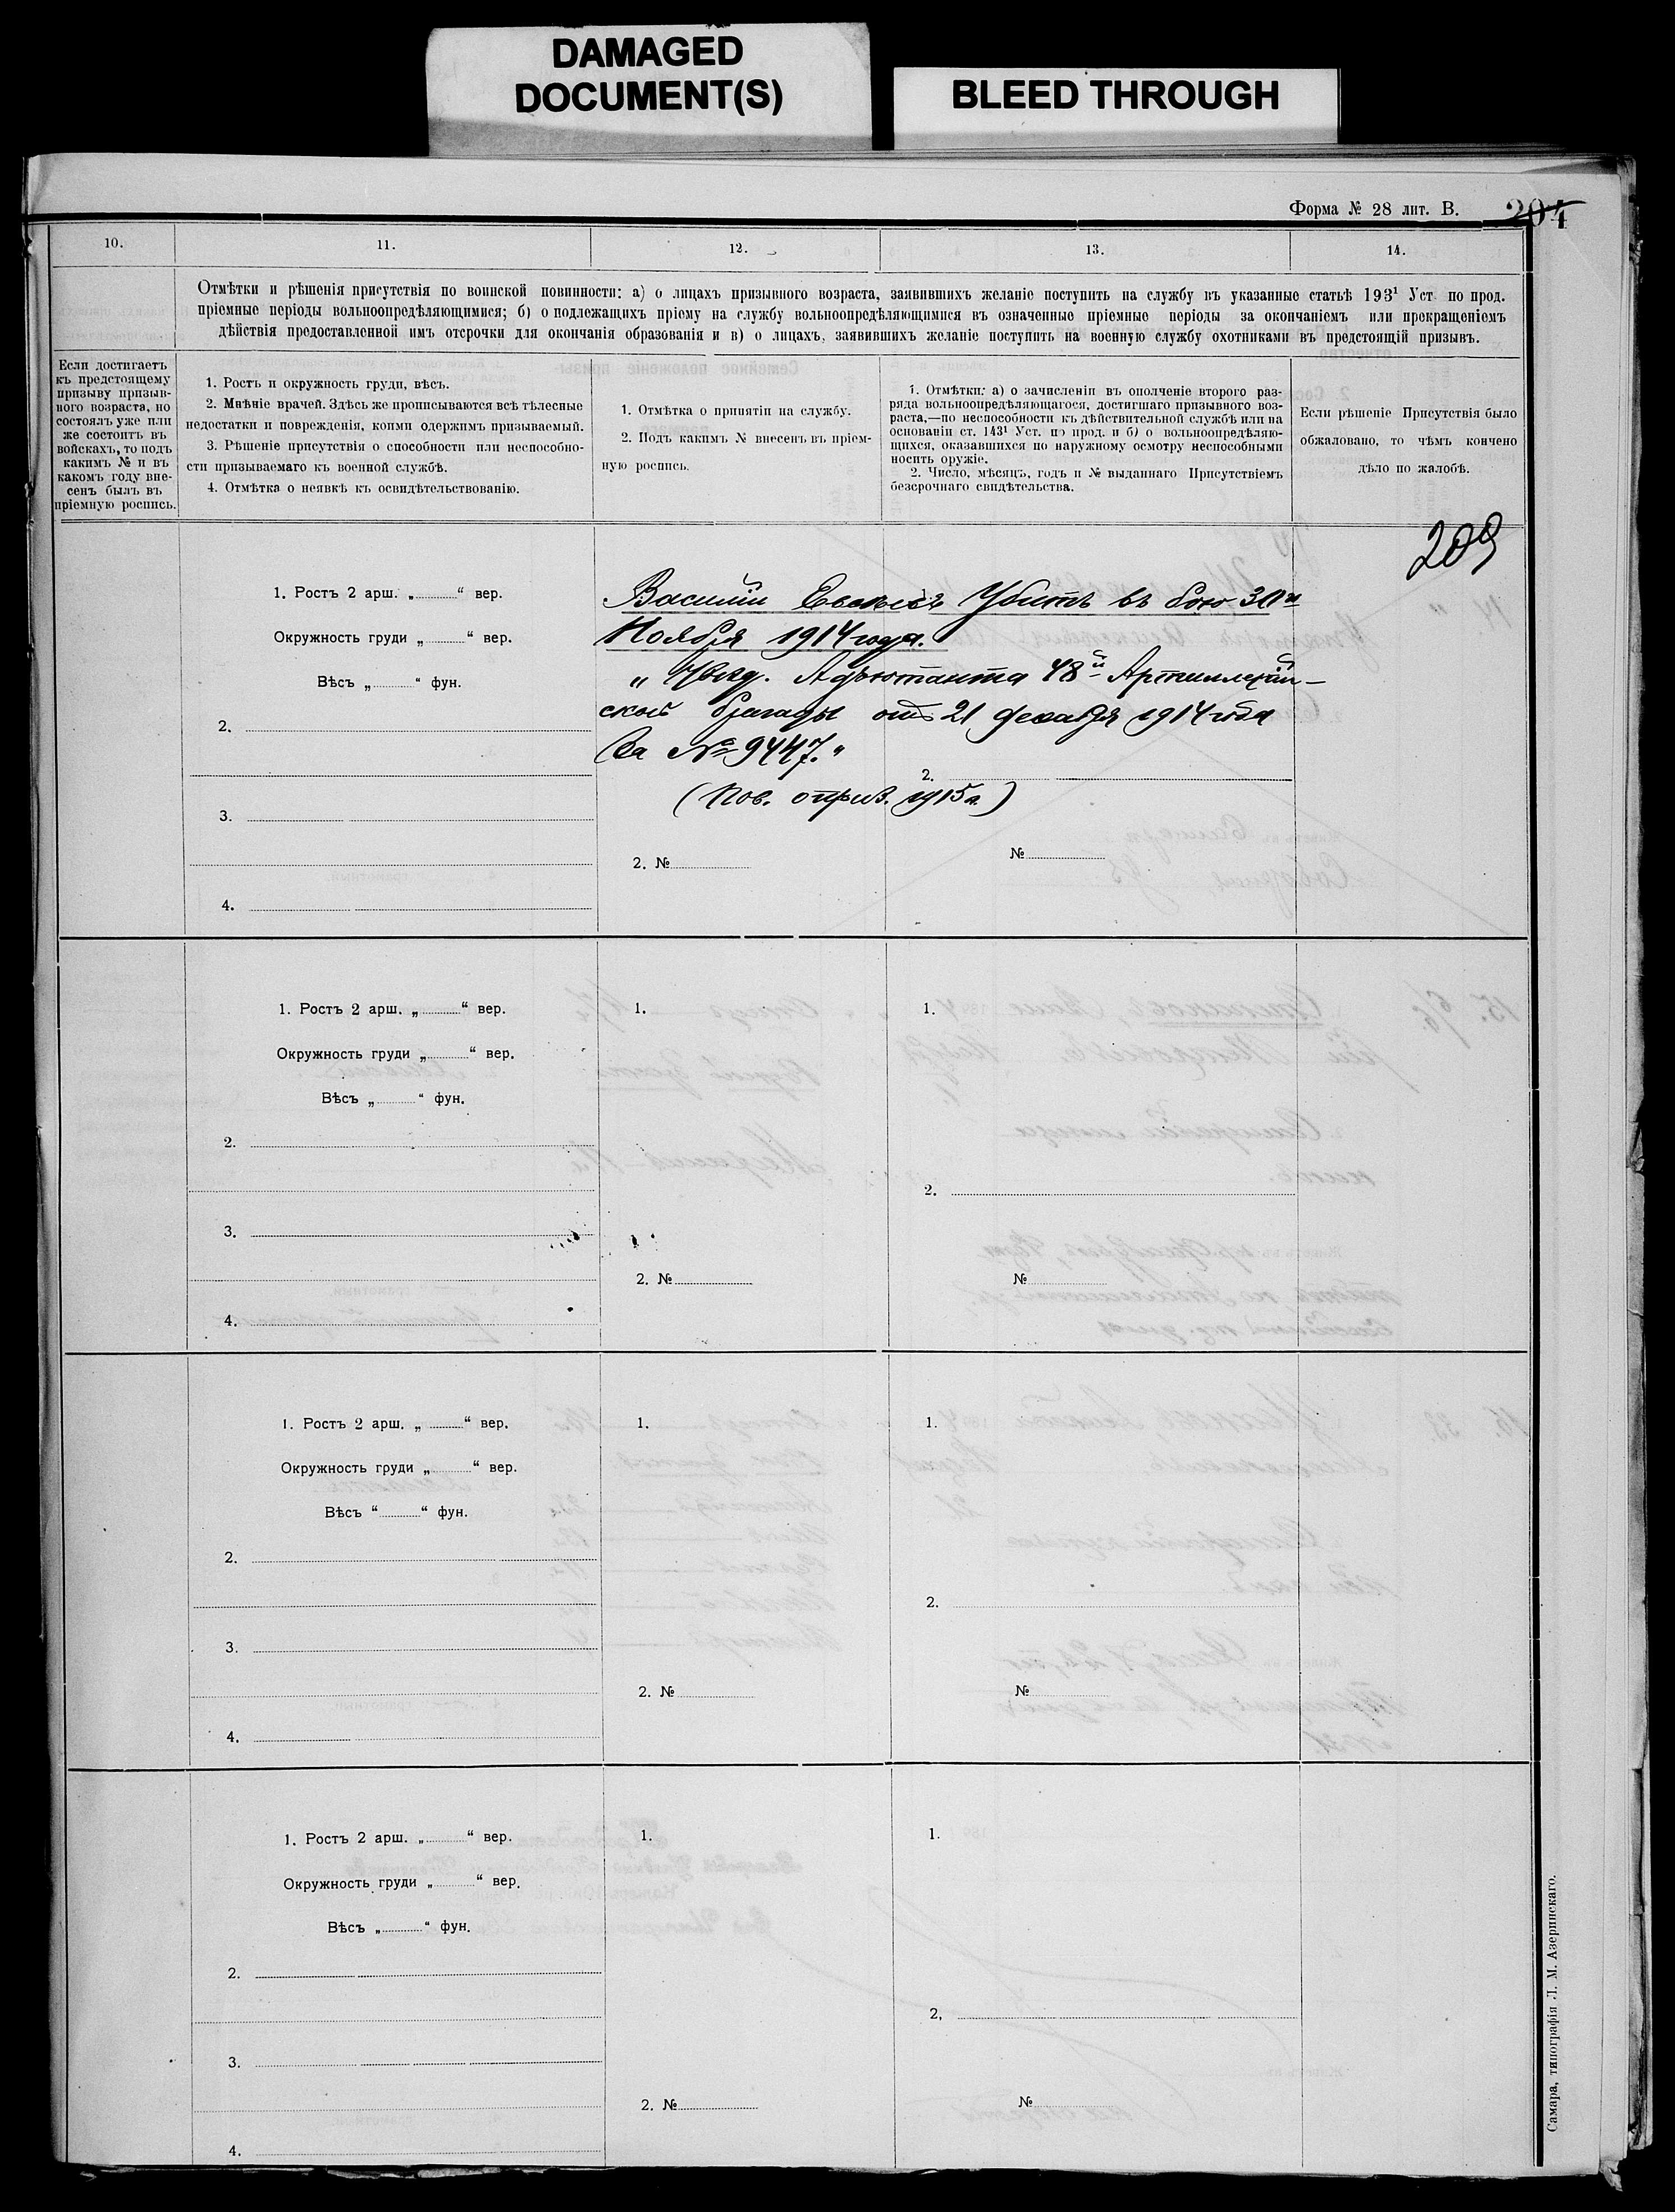 DAMAGED
DOCUMENT(S)
BLEED THROUGH
Форма № 28 лит. В.
204
10.
11.
12.
13.
14.
Отмѣтки и рѣшенія присутствія по воинской повинности: а) о лицахъ призывного возраста, заявившихъ желаніе поступить на службу въ указанные статьѣ 193¹ Уст по прод.
пріемные періоды вольноопредѣляющимися; б) о подлежащихъ пріему на службу вольноопредѣляющимися въ означенные пріемные періоды за окончаніемъ или прекращеніемъ
дѣйствія предоставленной имъ отсрочки для окончанія образованія и в) о лицахъ, заявившихъ желаніе поступить на военную службу охотниками въ предстоящій призывъ.
Если достигаетъ
къ предстоящему
призыву призыв-
ного возраста, но
состоялъ уже или
же состоитъ въ
войскахъ, то подъ
какимъ № и въ
какомъ году вне-
сенъ былъ въ
пріемную роспись.
1. Ростъ и окружность груди, вѣсъ.
2. Мнѣніе врачей. Здѣсь же прописываются всѣ тѣлесные
недостатки и поврежденія, коими одержимъ призываемый.
3. Рѣшеніе присутствія о способности или неспособно-
сти призываемаго къ военной службѣ.
4. Отмѣтка о неявкѣ къ освидѣтельствованію.
1. Отмѣтка о принятіи на службу.
2. Подъ какимъ № внесенъ въ пріем-
ную роспись.
1. Отмѣтки: а) о зачисленіи въ ополченіе второго раз-
ряда вольноопредѣляющагося, достигшаго призывного воз-
раста,—по неспособности къ дѣйствительной службѣ или на
основаніи ст. 143¹ Уст. по прод. и б) о вольноопредѣляю-
щихся, оказавшихся по наружному осмотру неспособными
носить оружіе.
2. Число, мѣсяцъ, годъ и № выданнаго Присутствіемъ
безсрочнаго свидѣтельства.
Если рѣшеніе Присутствія было
обжаловано, то чѣмъ кончено
дѣло по жалобѣ.
209
1. Ростъ 2 арш. „ “ вер.
Окружность груди „ “ вер.
Вѣсъ „ “ фун.
2.
3.
4.
Василій Убитъ въ бою 30го
Ноября 1914 года.
„ Адъютанта 48й Артиллерій-
ской бригады отъ 21 декабря 1914 года
за № 9447.“
1915 г.)
2. №
2.
№
1. Ростъ 2 арш. „ “ вер.
Окружность груди „ “ вер.
Вѣсъ „ “ фун.
2.
3.
4.
1.
2. №
1.
2.
№
1. Ростъ 2 арш. „ “ вер.
Окружность груди „ “ вер.
Вѣсъ “ “ фун.
2.
3.
4.
1.
2. №
1.
2.
№
1. Ростъ 2 арш. „ “ вер.
Окружность груди „ “ вер.
Вѣсъ „ “ фун.
2.
3.
4.
1.
2. №
1.
2,
№
Самара, типографія Л. М. Азеринскаго.